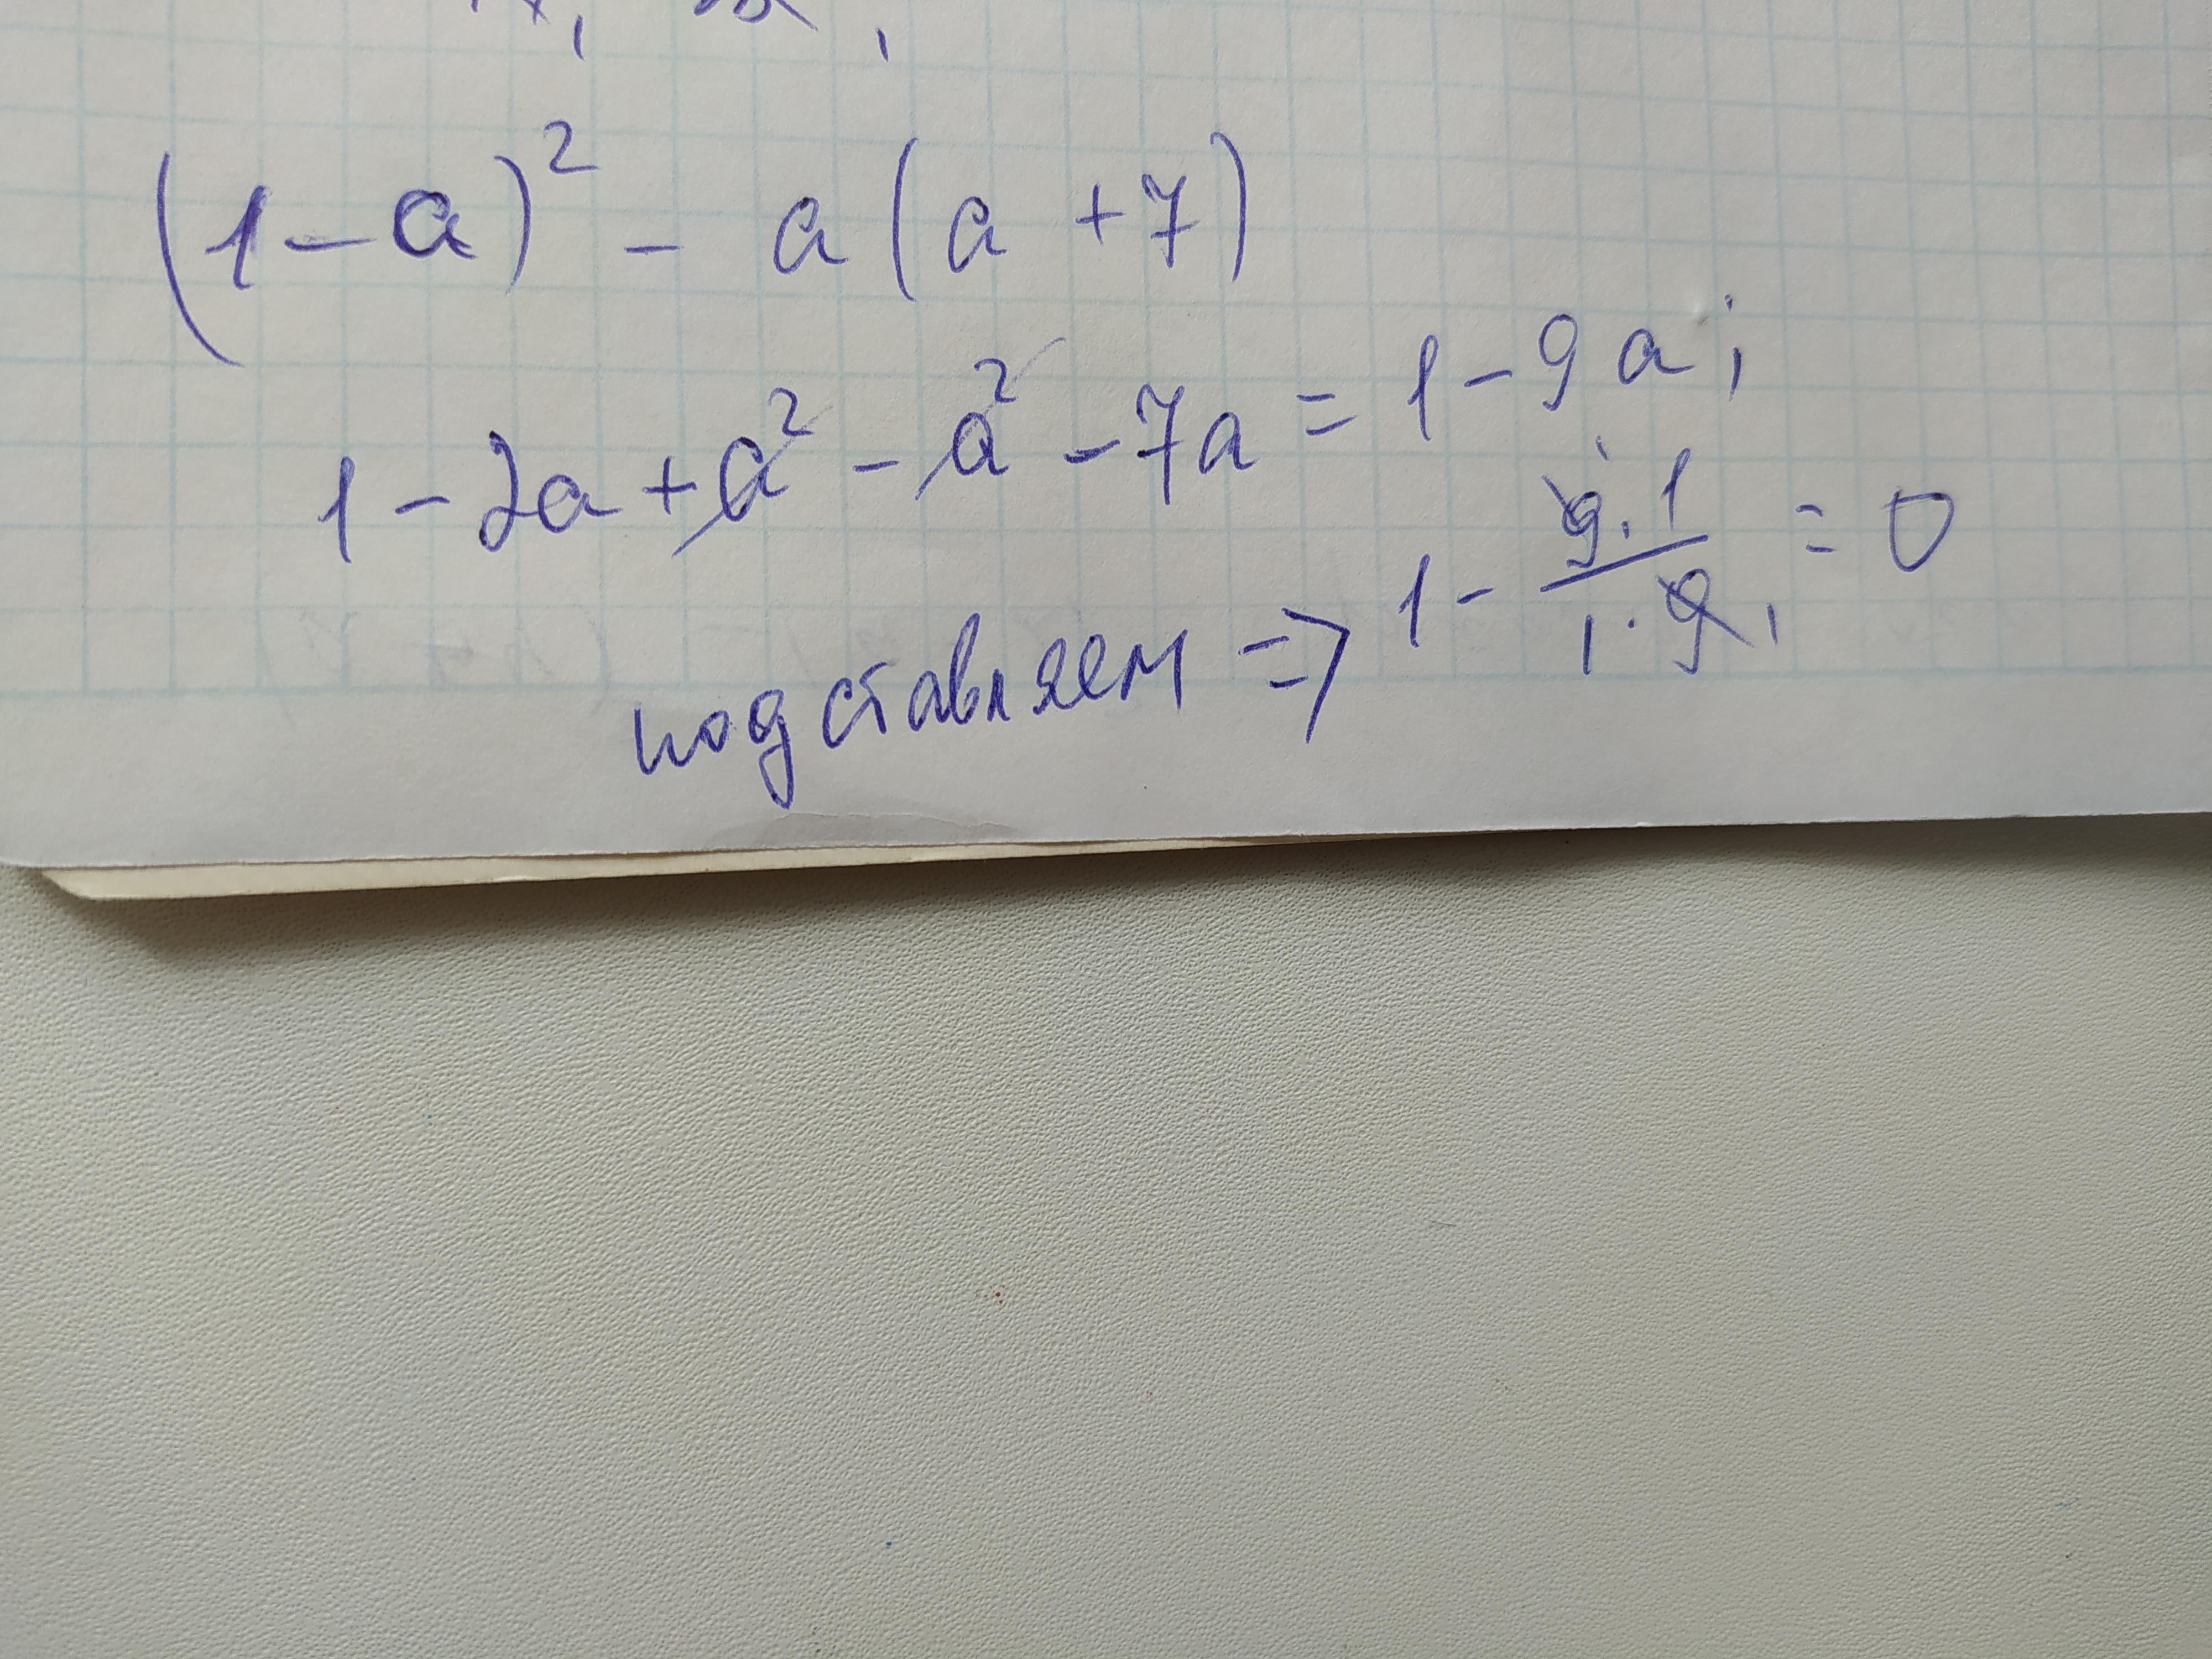 (1-a)² - a(a+7)
1-2a+a²-a²-7a=1-9a;
подставляем => 1- 9·1/1·9 = 0